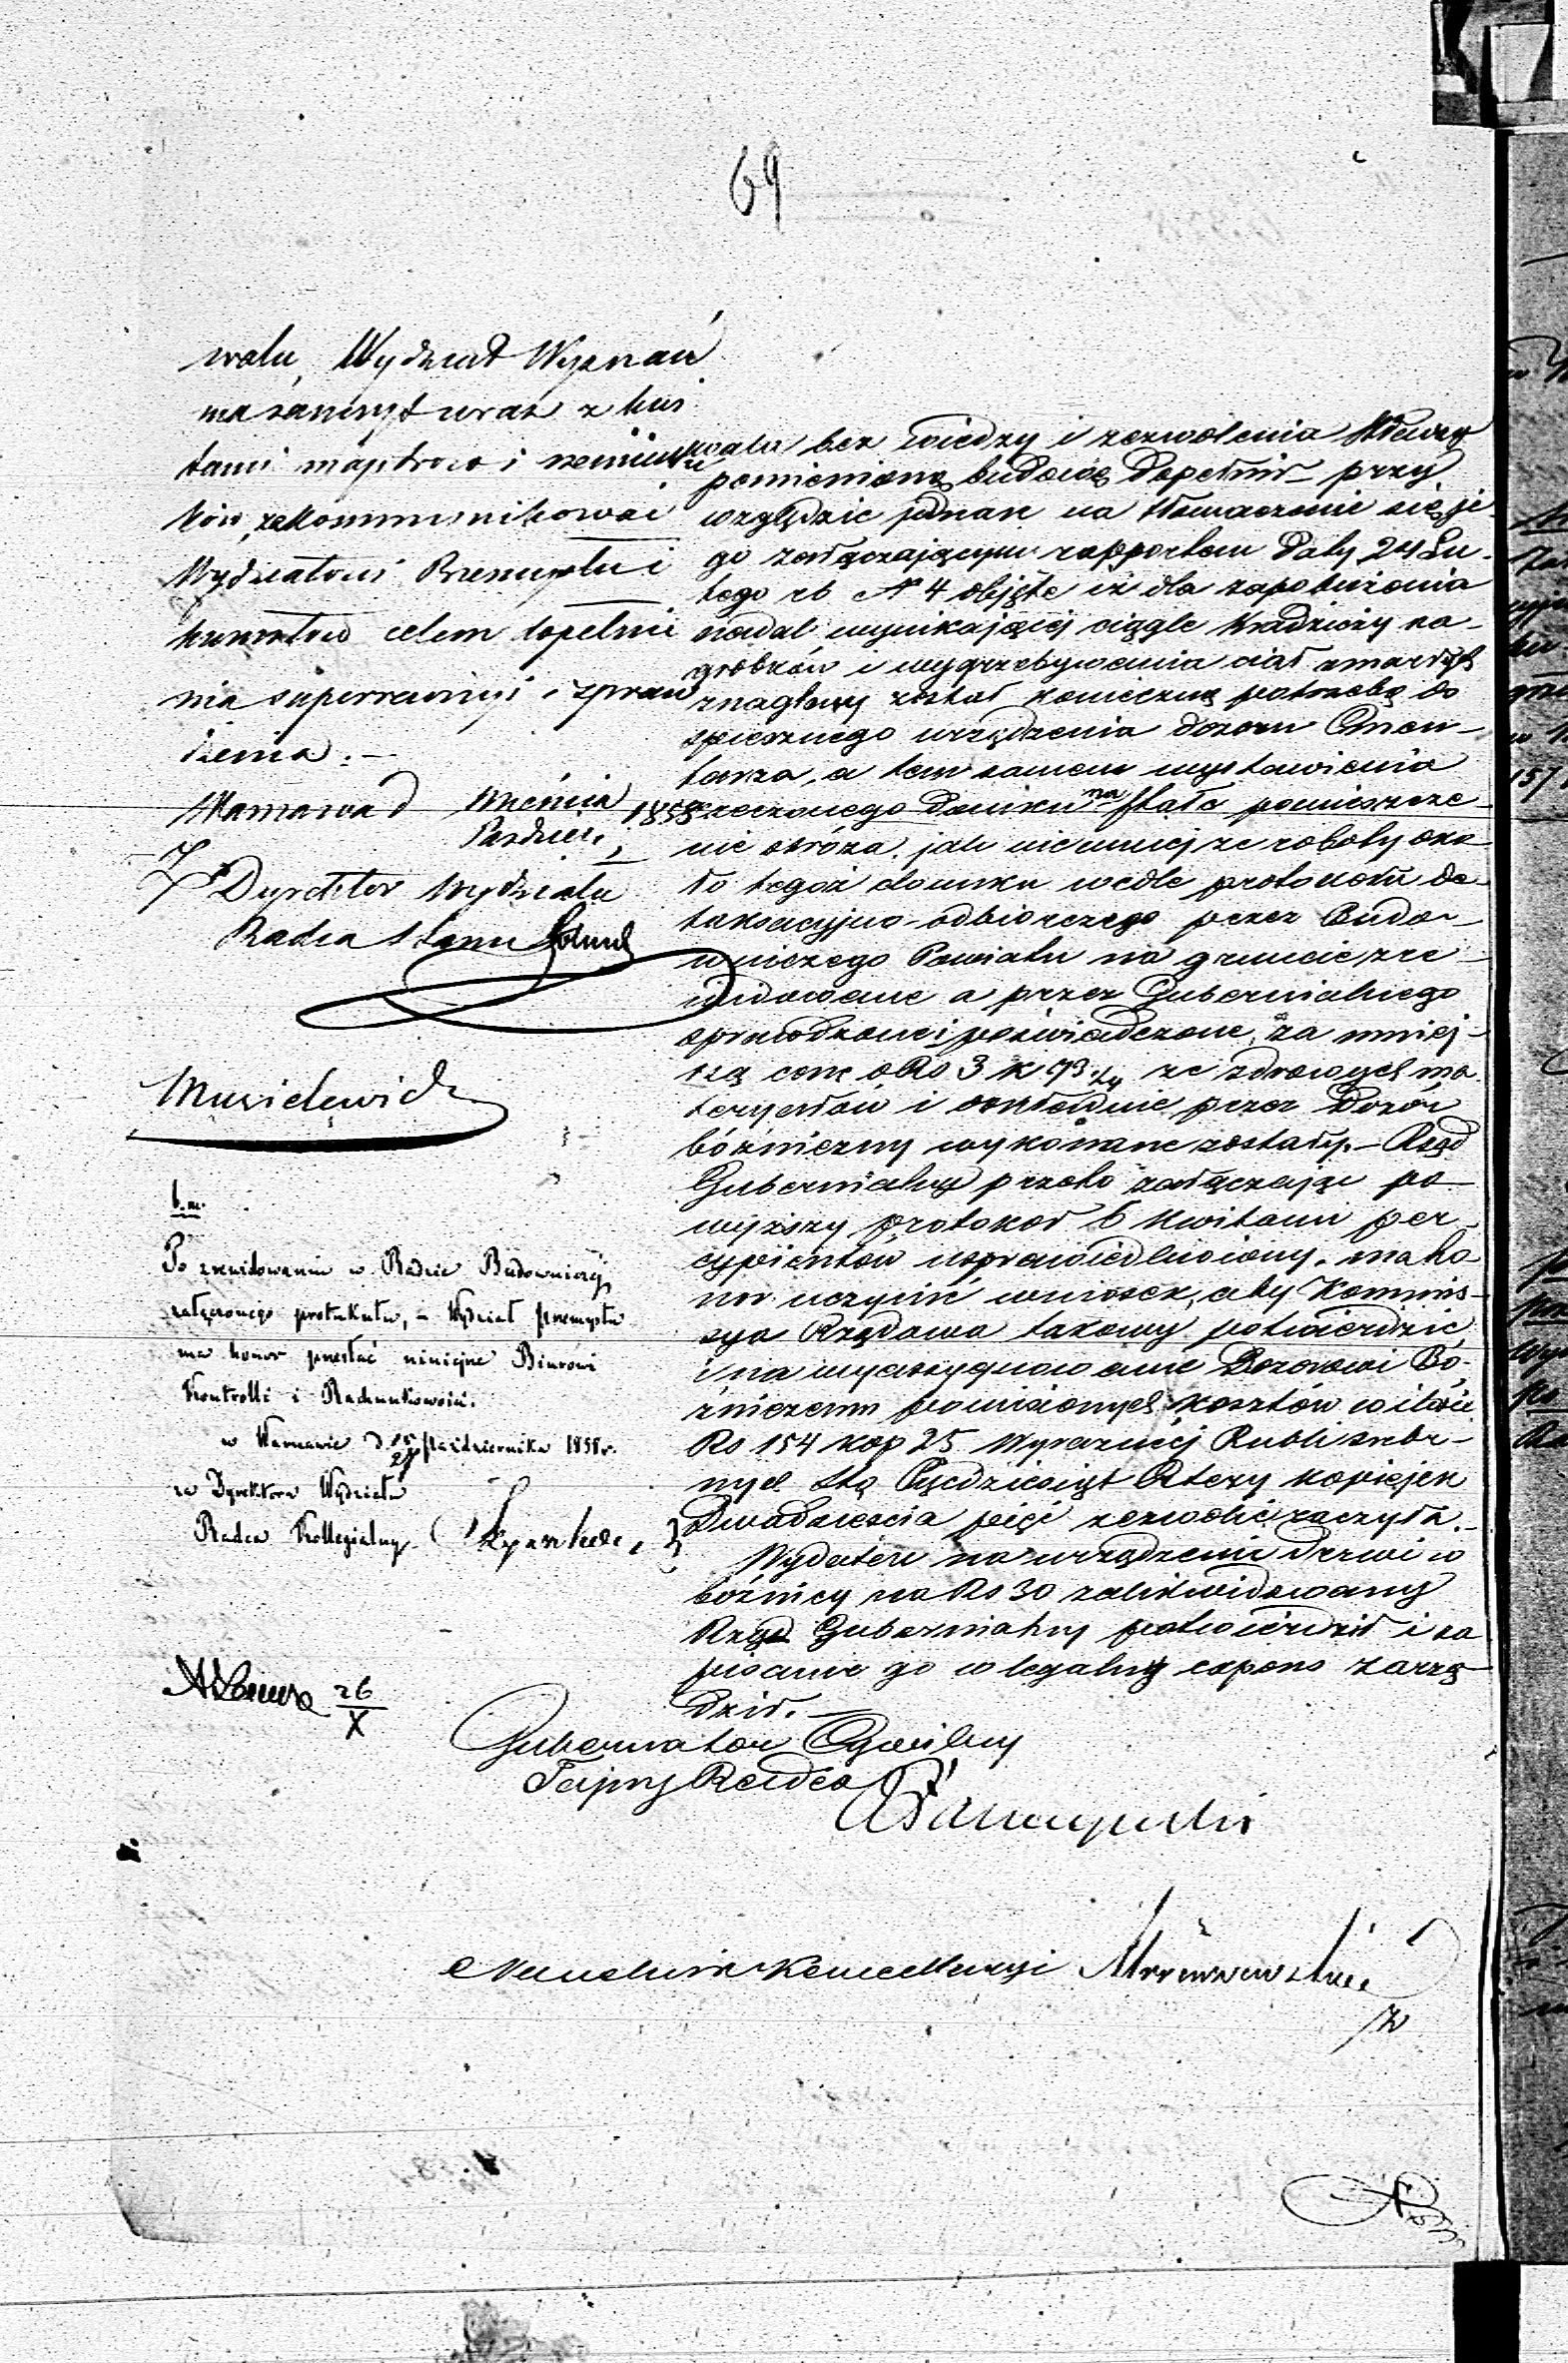 69
wału, Wydział Wyznań
ma zaszczyt wraz z kwi
tami majstrów i rzemieślni
ków, zakommunikować
Wydziałowi Przemysłu i
kunsztów celem dopełnie
nia superrewizyi i spraw
dzenia.—
Warszawa d Września
Paździer. 1858
Dyrektor Wydziału
Radca Stanu
b.m.
Po zrewidowaniu w Radzie Budowniczej
załączonego protokułu, – Wydział przemysłu
ma honor przesłać niniejsze Biurowi
Kontrolli i Rachunkowości.
w Warszawie d 15/27 Października 1858 r.
za Dyrektora Wydziału
Radca Kollegialny
26/X
bez wiedzy i zezwolenia Władzy
pomienioną budowę dopełnił – przy
względzie jednak na tłomaczenie się je-
go załączającym rapportem daty 24 Lu-
tego rb N 4 objęte iż dla zapobieżenia
nadal wynikającej ciągle kradzieży na-
grobków i wygrzebywania ciał zmarłych
znaglony został konieczną potrzebą do
spiesznego urządzenia dozoru Cmen-
tarza, a tem samem wystawienia
rzeczonego domku na stałe pomieszcze-
nie stróża, jak niemniej że roboty oko
ło tegoż domku wedle protokołu de-
taksacyjno-odbiorczego przez Budo-
wniczego Powiatu na gruncie zre-
widowane a przez Gubernialnego
sprawdzone i poświadczone, za mniej-
szą cenę o Rs 3 k 73 ze zdrowych ma
teryałów i dokładnie przez Dozór
bóżniczny wykonane zostały.– Rząd
Gubernialny przeto załączając po-
wyższy protokół 6 kwitami per-
cypientów usprawiedliwiony, ma ho-
nor uczynić wniosek, aby Kommis-
sya Rządowa takowy potwierdzić
i na wyasygnowanie Dozorowi Bó-
żniczemu poniesionych kosztów w ilości
Rs 154 kop 25 Wyraźniej Rubli srebr-
nych Sto Pięćdziesiąt Cztery kopiejek
Dwadzieścia pięć zezwolić raczyła.–
Wydatek na urządzenie drzwi w
bóżnicy na Rs 30 zalikwidowany
Rząd Gubernialny potwierdził i za
pisanie go w legalny expens zarzą-
dził.–
Gubernator Cywilny
Tajny Radca
Naczelnik Kancellaryi